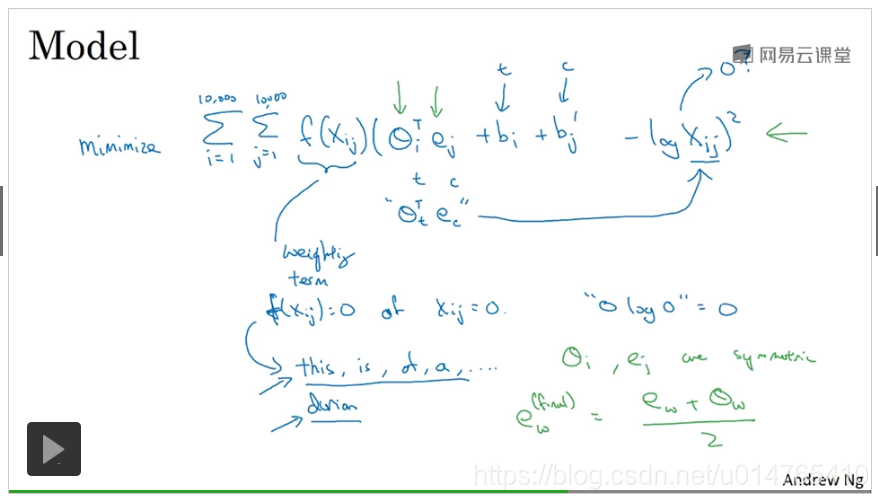 Model
网易云课堂
t c 0?
10,000 10,000
minimize Σ Σ f(Xij)(θiᵀ ej + bi + bj' - log Xij)²
i=1 j=1
t c
"θtᵀ ec"
weighting
term
f(Xij)=0 if Xij=0. "0 log 0" = 0
this, is, of, a, ....
durian
θi, ej are symmetric
ew^(final) = (ew + θw)/2
https://blog.csdn.net/u014765410
Andrew Ng